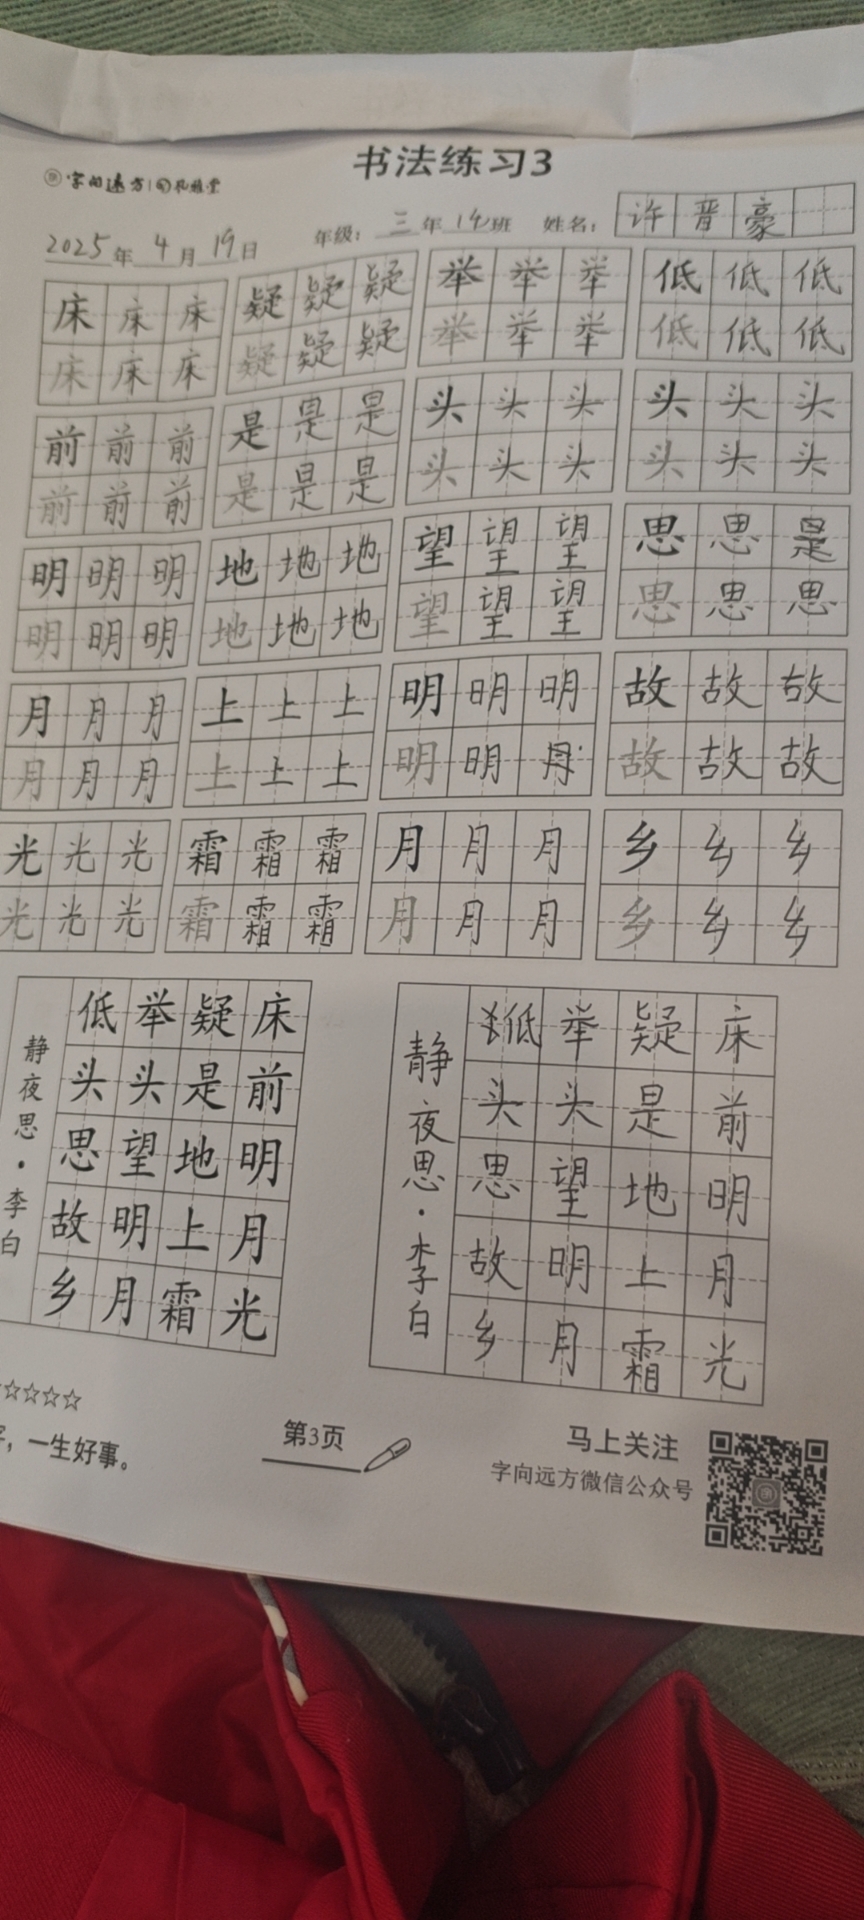 书法练习3
字向远方
2025年4月19日 年级：三年14班 姓名：许晋豪
床床床 疑疑疑 举举举 低低低
床床床 疑疑疑 举举举 低低低
前前前 是是是 头头头 头头头
前前前 是是是 头头头 头头头
明明明 地地地 望望望 思思是
明明明 地地地 望望望 思思思
月月月 上上上 明明明 故故故
月月月 上上上 明明 故故故
光光光 霜霜霜 月月月 乡乡乡
光光光 霜霜霜 月月月 乡乡乡
床前明月光
疑是地上霜
举头望明月
低头思故乡
静夜思·李白
床前明月光
疑是地上霜
举头望明月
低头思故乡
静夜思·李白
☆☆☆☆☆
，一生好事。
第3页
马上关注
字向远方微信公众号